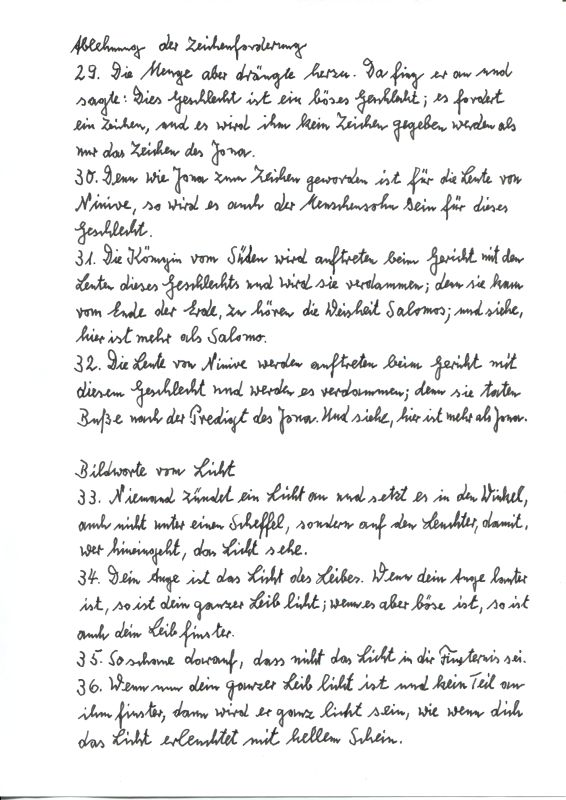 Ablehnung der Zeichenforderung
29. Die Menge aber drängte herzu. Da fing er an und
sagte: Dies Geschlecht ist ein böses Geschlecht; es fordert
ein Zeichen, und es wird ihm kein Zeichen gegeben werden als
nur das Zeichen des Jona.
30. Denn wie Jona zum Zeichen geworden ist für die Leute von
Ninive, so wird es auch der Menschensohn sein für dieses
Geschlecht.
31. Die Königin vom Süden wird auftreten beim Gericht mit den
Leuten dieses Geschlechts und wird sie verdammen; denn sie kam
vom Ende der Erde, zu hören die Weisheit Salomos; und siehe,
hier ist mehr als Salomo.
32. Die Leute von Ninive werden auftreten beim Gericht mit
diesem Geschlecht und werden es verdammen; denn sie taten
Buße nach der Predigt des Jona. Und siehe, hier ist mehr als Jona.
Bildworte vom Licht
33. Niemand zündet ein Licht an und setzt es in den Winkel,
auch nicht unter einen Scheffel, sondern auf den Leuchter, damit,
wer hineingeht, das Licht sehe.
34. Dein Auge ist das Licht des Leibes. Wenn dein Auge lauter
ist, so ist dein ganzer Leib licht; wenn es aber böse ist, so ist
auch dein Leib finster.
35. So schaue darauf, dass nicht das Licht in dir Finsternis sei.
36. Wenn nun dein ganzer Leib licht ist und kein Teil an
ihm finster, dann wird er ganz licht sein, wie wenn dich
das Licht erleuchtet mit hellem Schein.